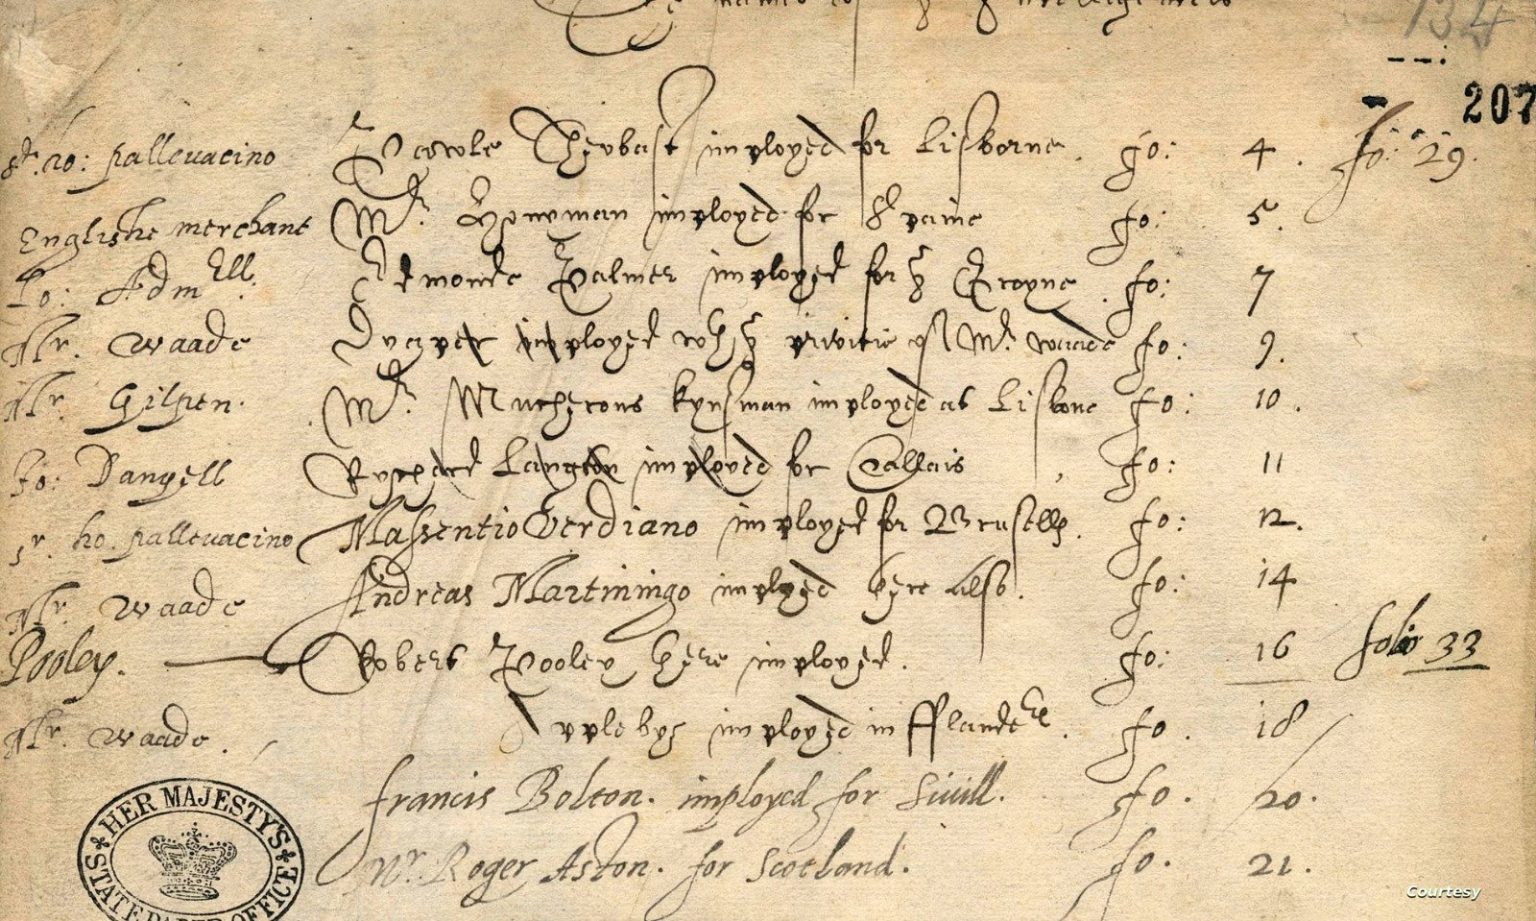 134
207
Sr. ho: pallevacino Pawle Theobast imployed for Lisborne. fo: 4. fo: 29.
Englishe merchant Mr. Honyman imployed for Spaine fo: 5.
Lo: Admell. Edmonde Palmer imployed for ye Groyne. fo: 7
Mr. Waade imployed wth ye privitie of Mr. Waade fo: 9.
Mr. Gilpen. Mr. Mucherons kynsman imployed at Lisbone fo: 10.
Jo: Danyell Rychard Langton imployed for Callais, fo: 11
Sr. ho. pallevacino Massentio Verdiano imployed for Brusells. fo: 12.
Mr. Waade Andreas Martiningo imployed here also. fo: 14
Pooley. Robert Pooley here imployed. fo: 16 folio 33
Mr. Waade. Appleby imployed in fflanders. fo. 18
francis Bolton. imployed for Sivill. fo. 20.
Mr. Roger Aston. for Scotland. fo. 21.
HER MAJESTY'S
STATE PAPER OFFICE
Courtesy